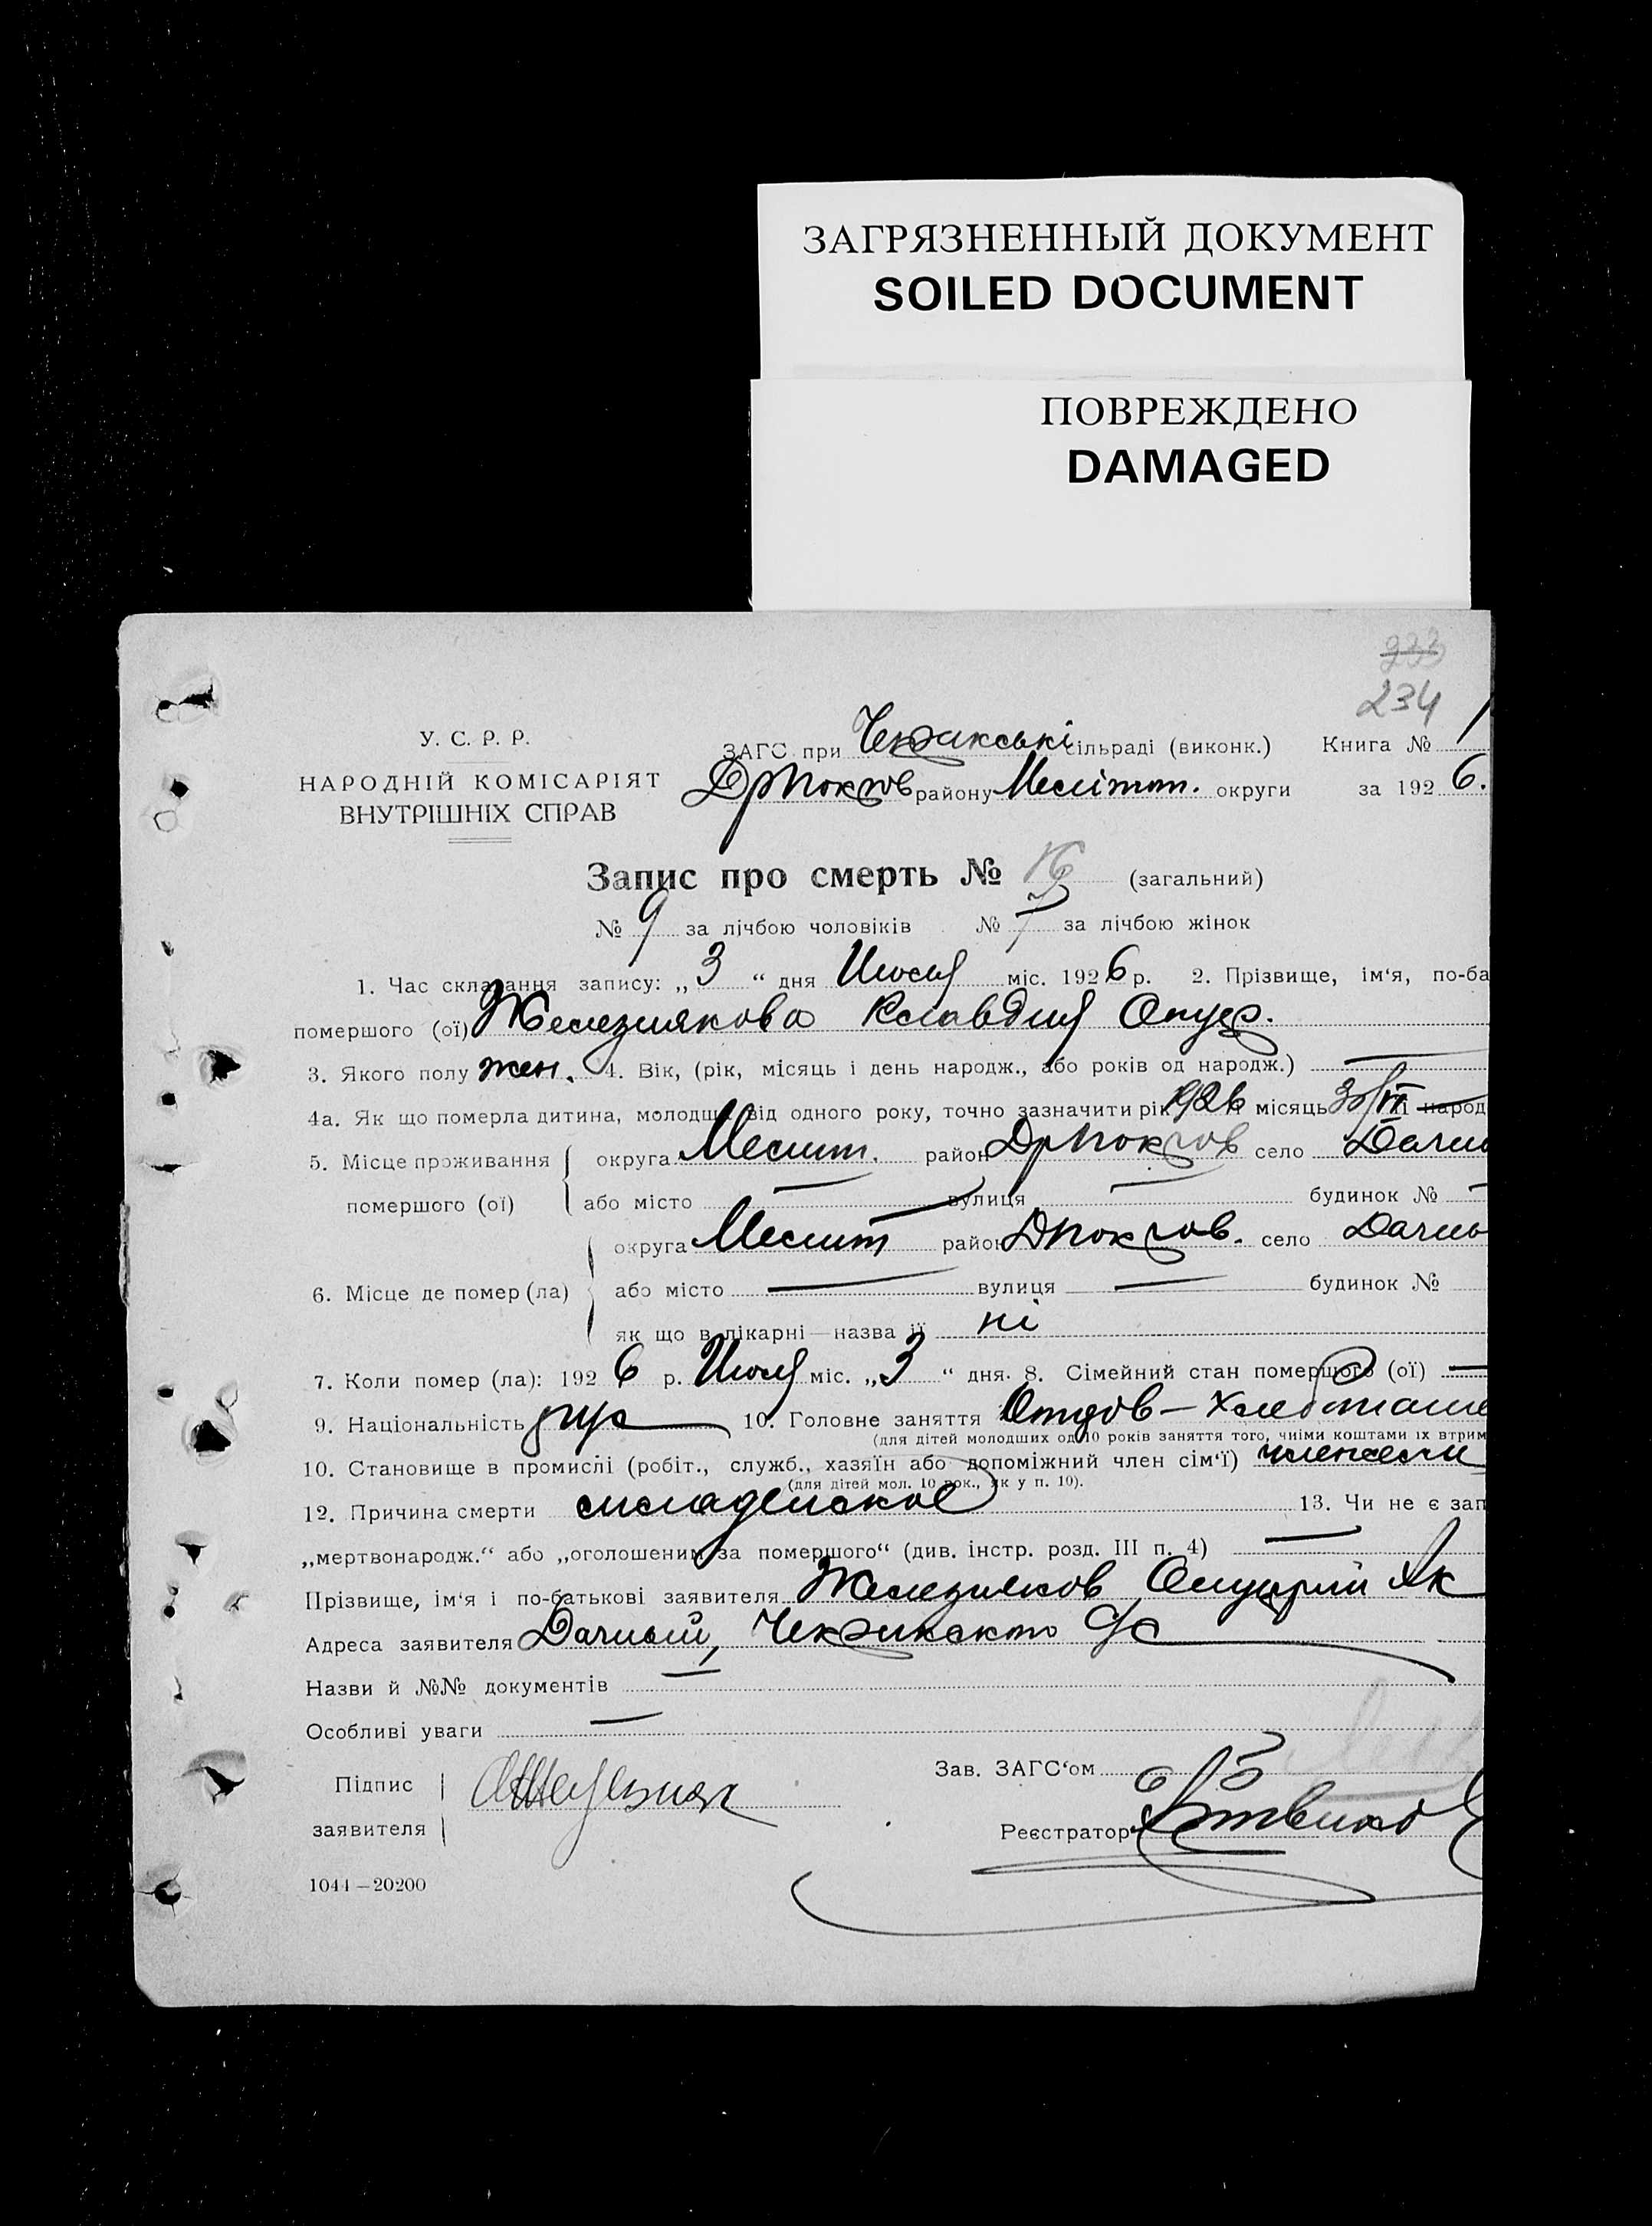 ЗАГРЯЗНЕННЫЙ ДОКУМЕНТ
SOILED DOCUMENT
ПОВРЕЖДЕНО
DAMAGED
233
234
У. С. Р. Р.
НАРОДНІЙ КОМІСАРІЯТ
ВНУТРІШНІХ СПРАВ
ЗАГС при сільраді (виконк.) Книга № 1
району Меліт. округи за 1926.
Запис про смерть № 16 (загальний)
№ 9 за лічбою чоловіків № 7 за лічбою жінок
1. Час складання запису: „ 3 “ дня Июля міс. 1926 р. 2. Прізвище, ім‘я, по-ба
помершого (ої) Железнякова Клавдия
3. Якого полу жен. 4. Вік, (рік, місяць і день народж., або років од народж.) —
4а. Як що померла дитина, молодша від одного року, точно зазначити рік 1926 місяць і народ
5. Місце проживання округа Мелит. район село
помершого (ої) або місто — вулиця — будинок № —
округа Мелит район село
6. Місце де помер (ла) або місто — вулиця — будинок №
як що в лікарні—назва її ні
7. Коли помер (ла): 1926 р. Июля міс. „ 3 “ дня. 8. Сімейний стан помершого (ої) —
9. Національність рус 10. Головне заняття
(для дітей молодших од 10 років заняття того, чиїми коштами їх втрим
10. Становище в промислі (робіт., служб., хазяїн або допоміжний член сім‘ї)
(для дітей мол. 10 рок., як у п. 10).
12. Причина смерти младенское 13. Чи не є зап
„мертвонародж.“ або „оголошеним за помершого“ (див. інстр. розд. III п. 4) —
Прізвище, ім‘я і по-батькові заявителя Железняков Як
Адреса заявителя Дачный, с/с
Назви й №№ документів —
Особливі уваги —
Підпис
заявителя
Зав. ЗАГС‘ом
Реєстратор
1044—20200